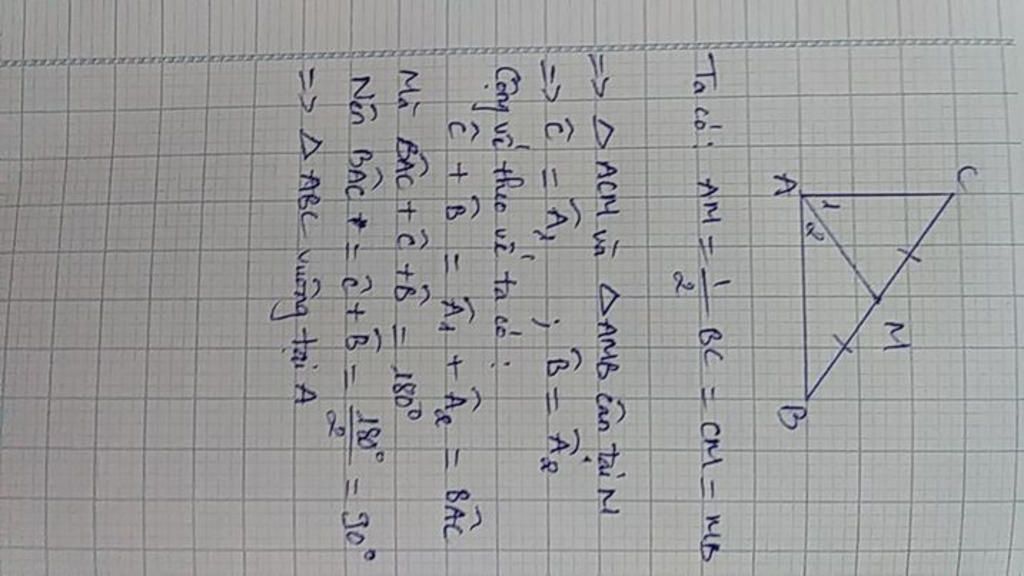 C
A
1
2
M
B
Ta có: AM = 1/2 BC = CM = MB
=> Δ ACM và Δ AMB cân tại M
=> Ĉ = Â1 ; B̂ = Â2
Cộng vế theo vế ta có:
Ĉ + B̂ = Â1 + Â2 = BÂC
Mà BÂC + Ĉ + B̂ = 180°
Nên BÂC = Ĉ + B̂ = 180°/2 = 90°
=> Δ ABC vuông tại A